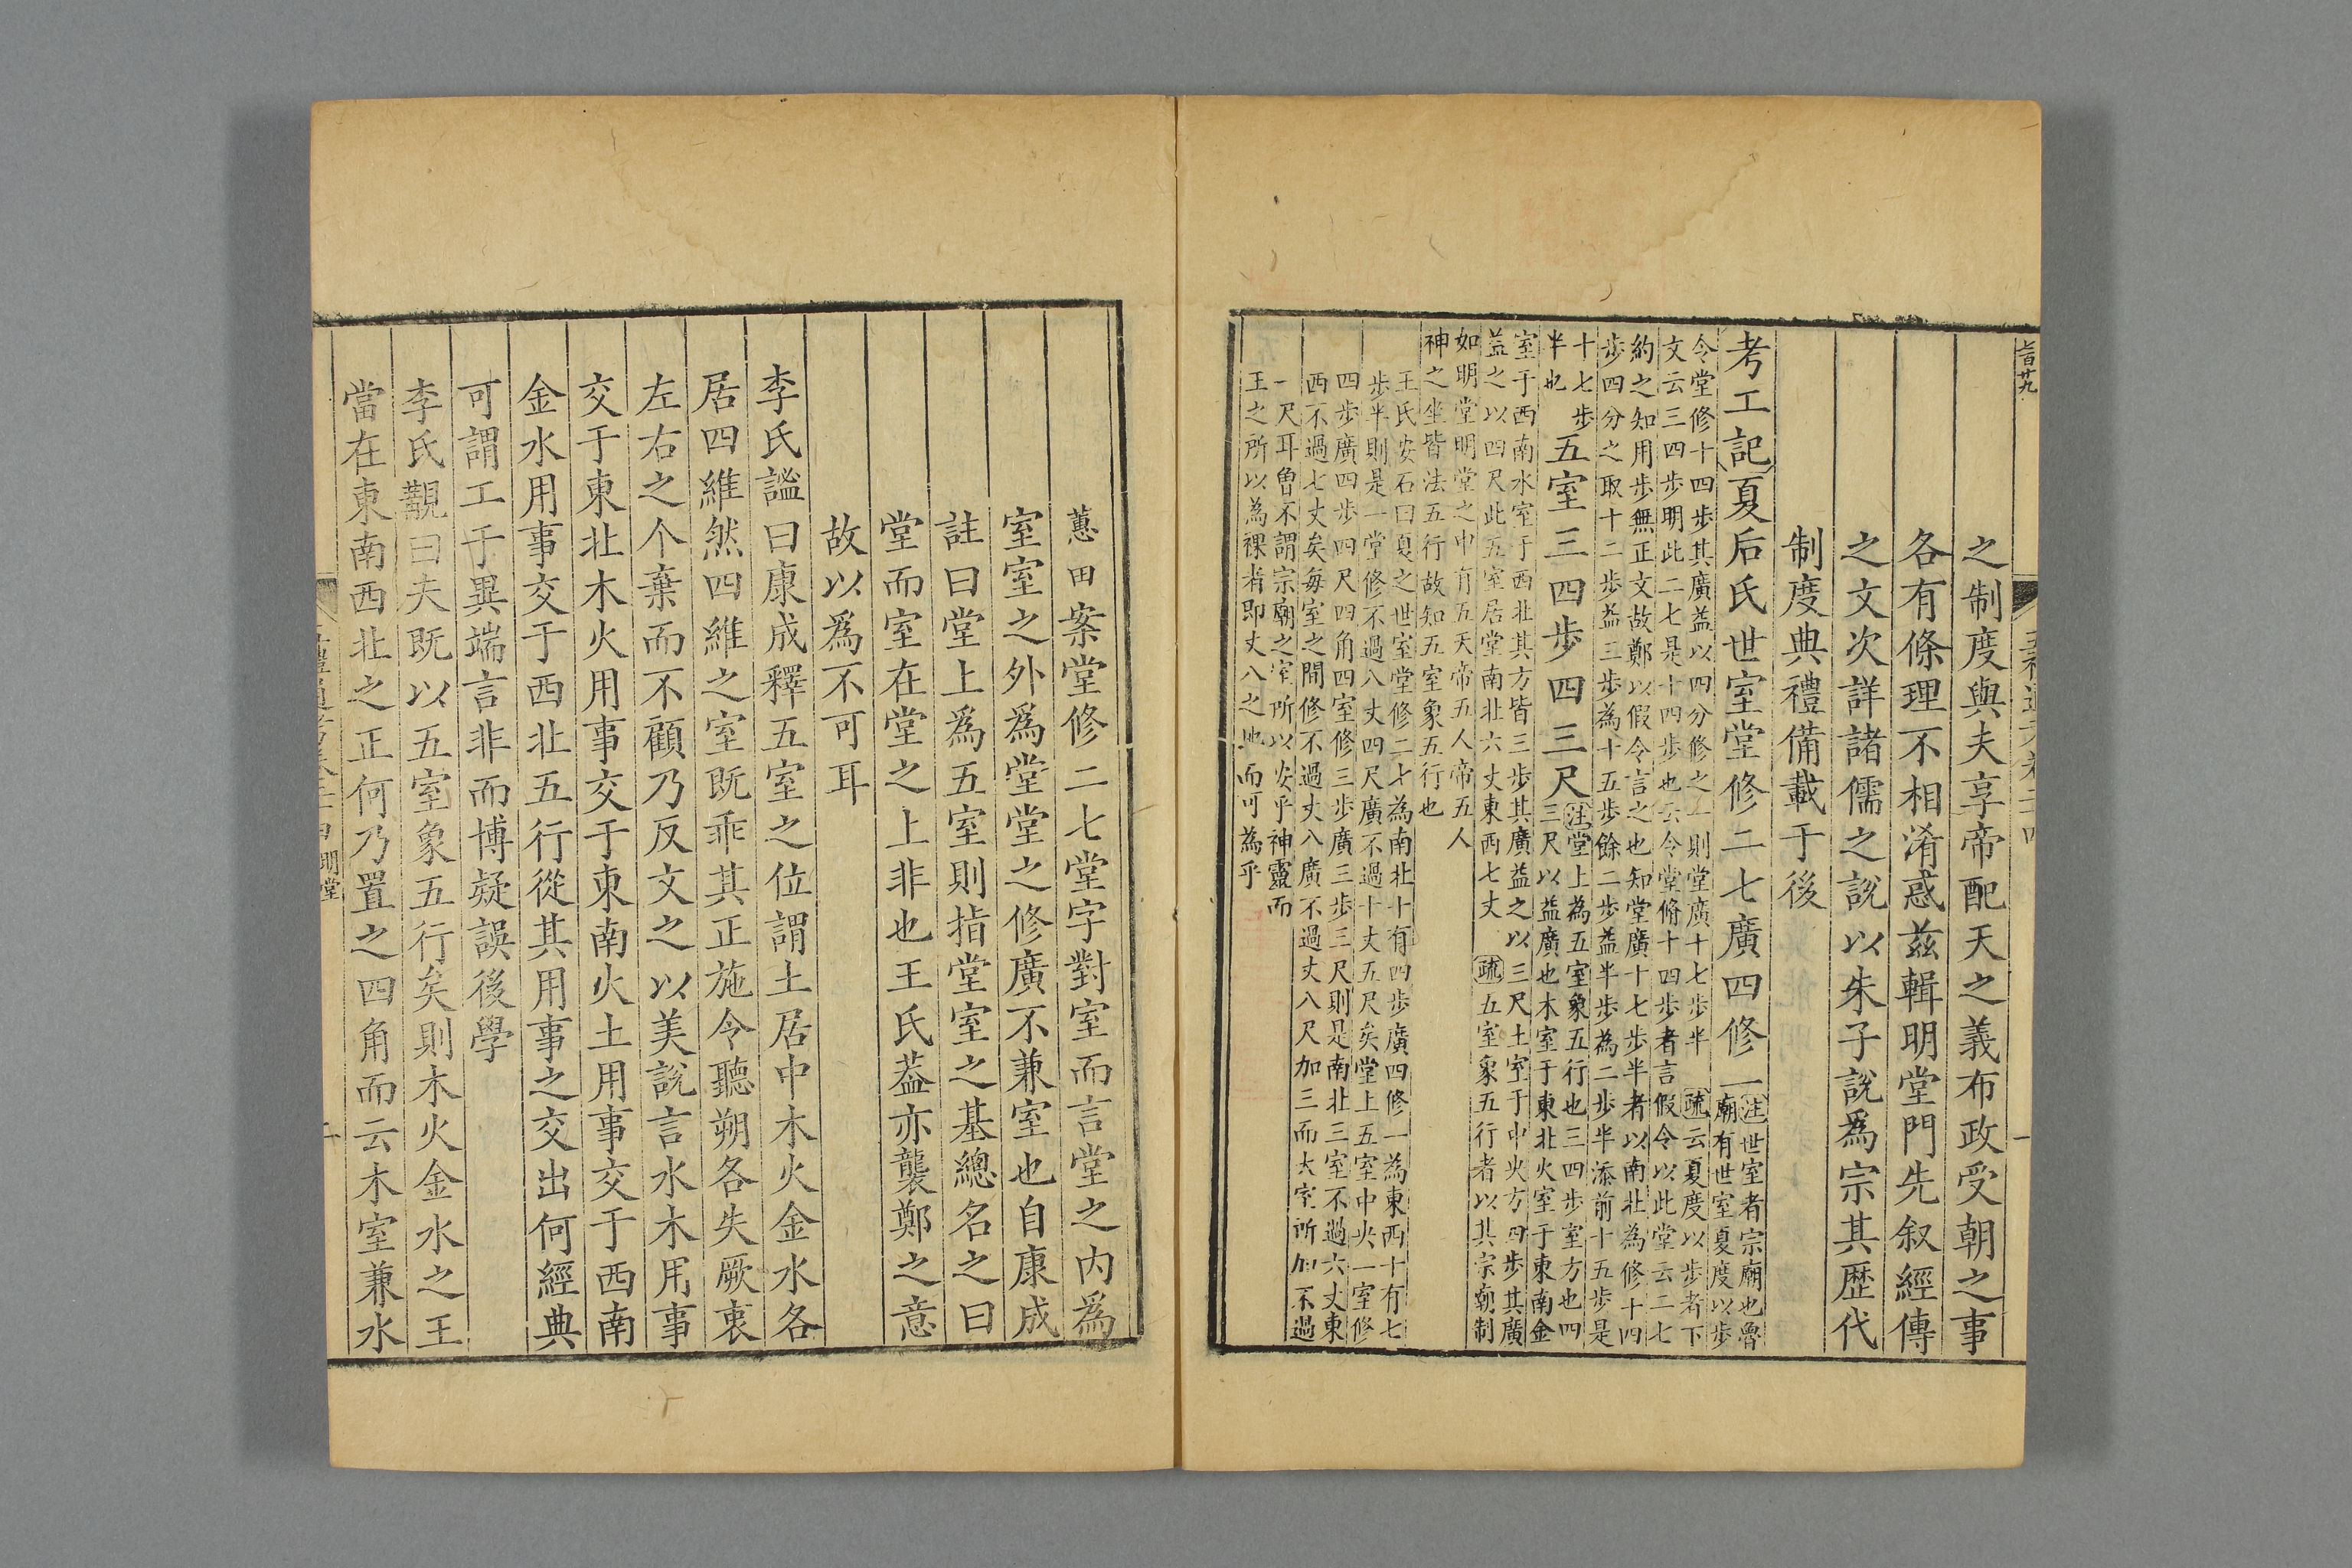 之制度與夫享帝配天之義布政受朝之事
各有條理不相淆惑茲輯明堂門先叙經傳
之文次詳諸儒之說以朱子說為宗其歷代
制度典禮備載于後
考工記夏后氏世室堂修二七廣四修一
注世室者宗廟也魯
廟有世室夏度以步
令堂修十四步其廣益以四分修之一則堂廣十七步半　疏云夏度以步者下
文云三四步明此二七是十四步也云令堂脩十四步者言假令以此堂云二七
約之知用步無正文故鄭以假令言之也知堂廣十七步半者以南北為修十四
步四分之取十二步益三步為十五步餘二步益半步為二步半添前十五步是
十七步
半也
五室三四步四三尺
注堂上為五室象五行也三四步室方也四
三尺以益廣也木室于東北火室于東南金
室于西南水室于西北其方皆三步其廣益之以三尺土室于中央方四步其廣
益之以四尺此五室居堂南北六丈東西七丈　疏五室象五行者以其宗廟制
如明堂明堂之中有五天帝五人帝五人
神之坐皆法五行故知五室象五行也
王氏安石曰夏之世室堂修二七為南北十有四步廣四修一為東西十有七
步半則是一堂修不過八丈四尺廣不過十丈五尺矣堂上五室中央一室修
四步廣四步四尺四角四室修三步廣三步三尺則是南北三室不過六丈東
西不過七丈矣每室之間修不過丈八廣不過丈八尺加三而大室所加不過
一尺耳曾不謂宗廟之室所以安乎神靈而
王之所以為祼者即丈八之地而可為乎
蕙田案堂修二七堂字對室而言堂之内為
室室之外為堂堂之修廣不兼室也自康成
註曰堂上為五室則指堂室之基總名之曰
堂而室在堂之上非也王氏葢亦襲鄭之意
故以為不可耳
李氏謐曰康成釋五室之位謂土居中木火金水各
居四維然四維之室既乖其正施令聽朔各失厥衷
左右之个棄而不顧乃反文之以美說言水木用事
交于東北木火用事交于東南火土用事交于西南
金水用事交于西北五行從其用事之交出何經典
可謂工于異端言非而博疑誤後學
李氏覯曰夫既以五室象五行矣則木火金水之王
當在東南西北之正何乃置之四角而云木室兼水
明堂